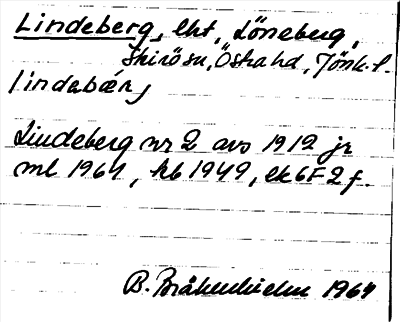 Lindeberg, lht, Löneberg,
Skirösn, Östra hd, Jönk. l.
lindabærj
Lindeberg nr 2 avs 1919 jr
ml 1964, kb 1949, ek 6F 2 f.
B. 1964